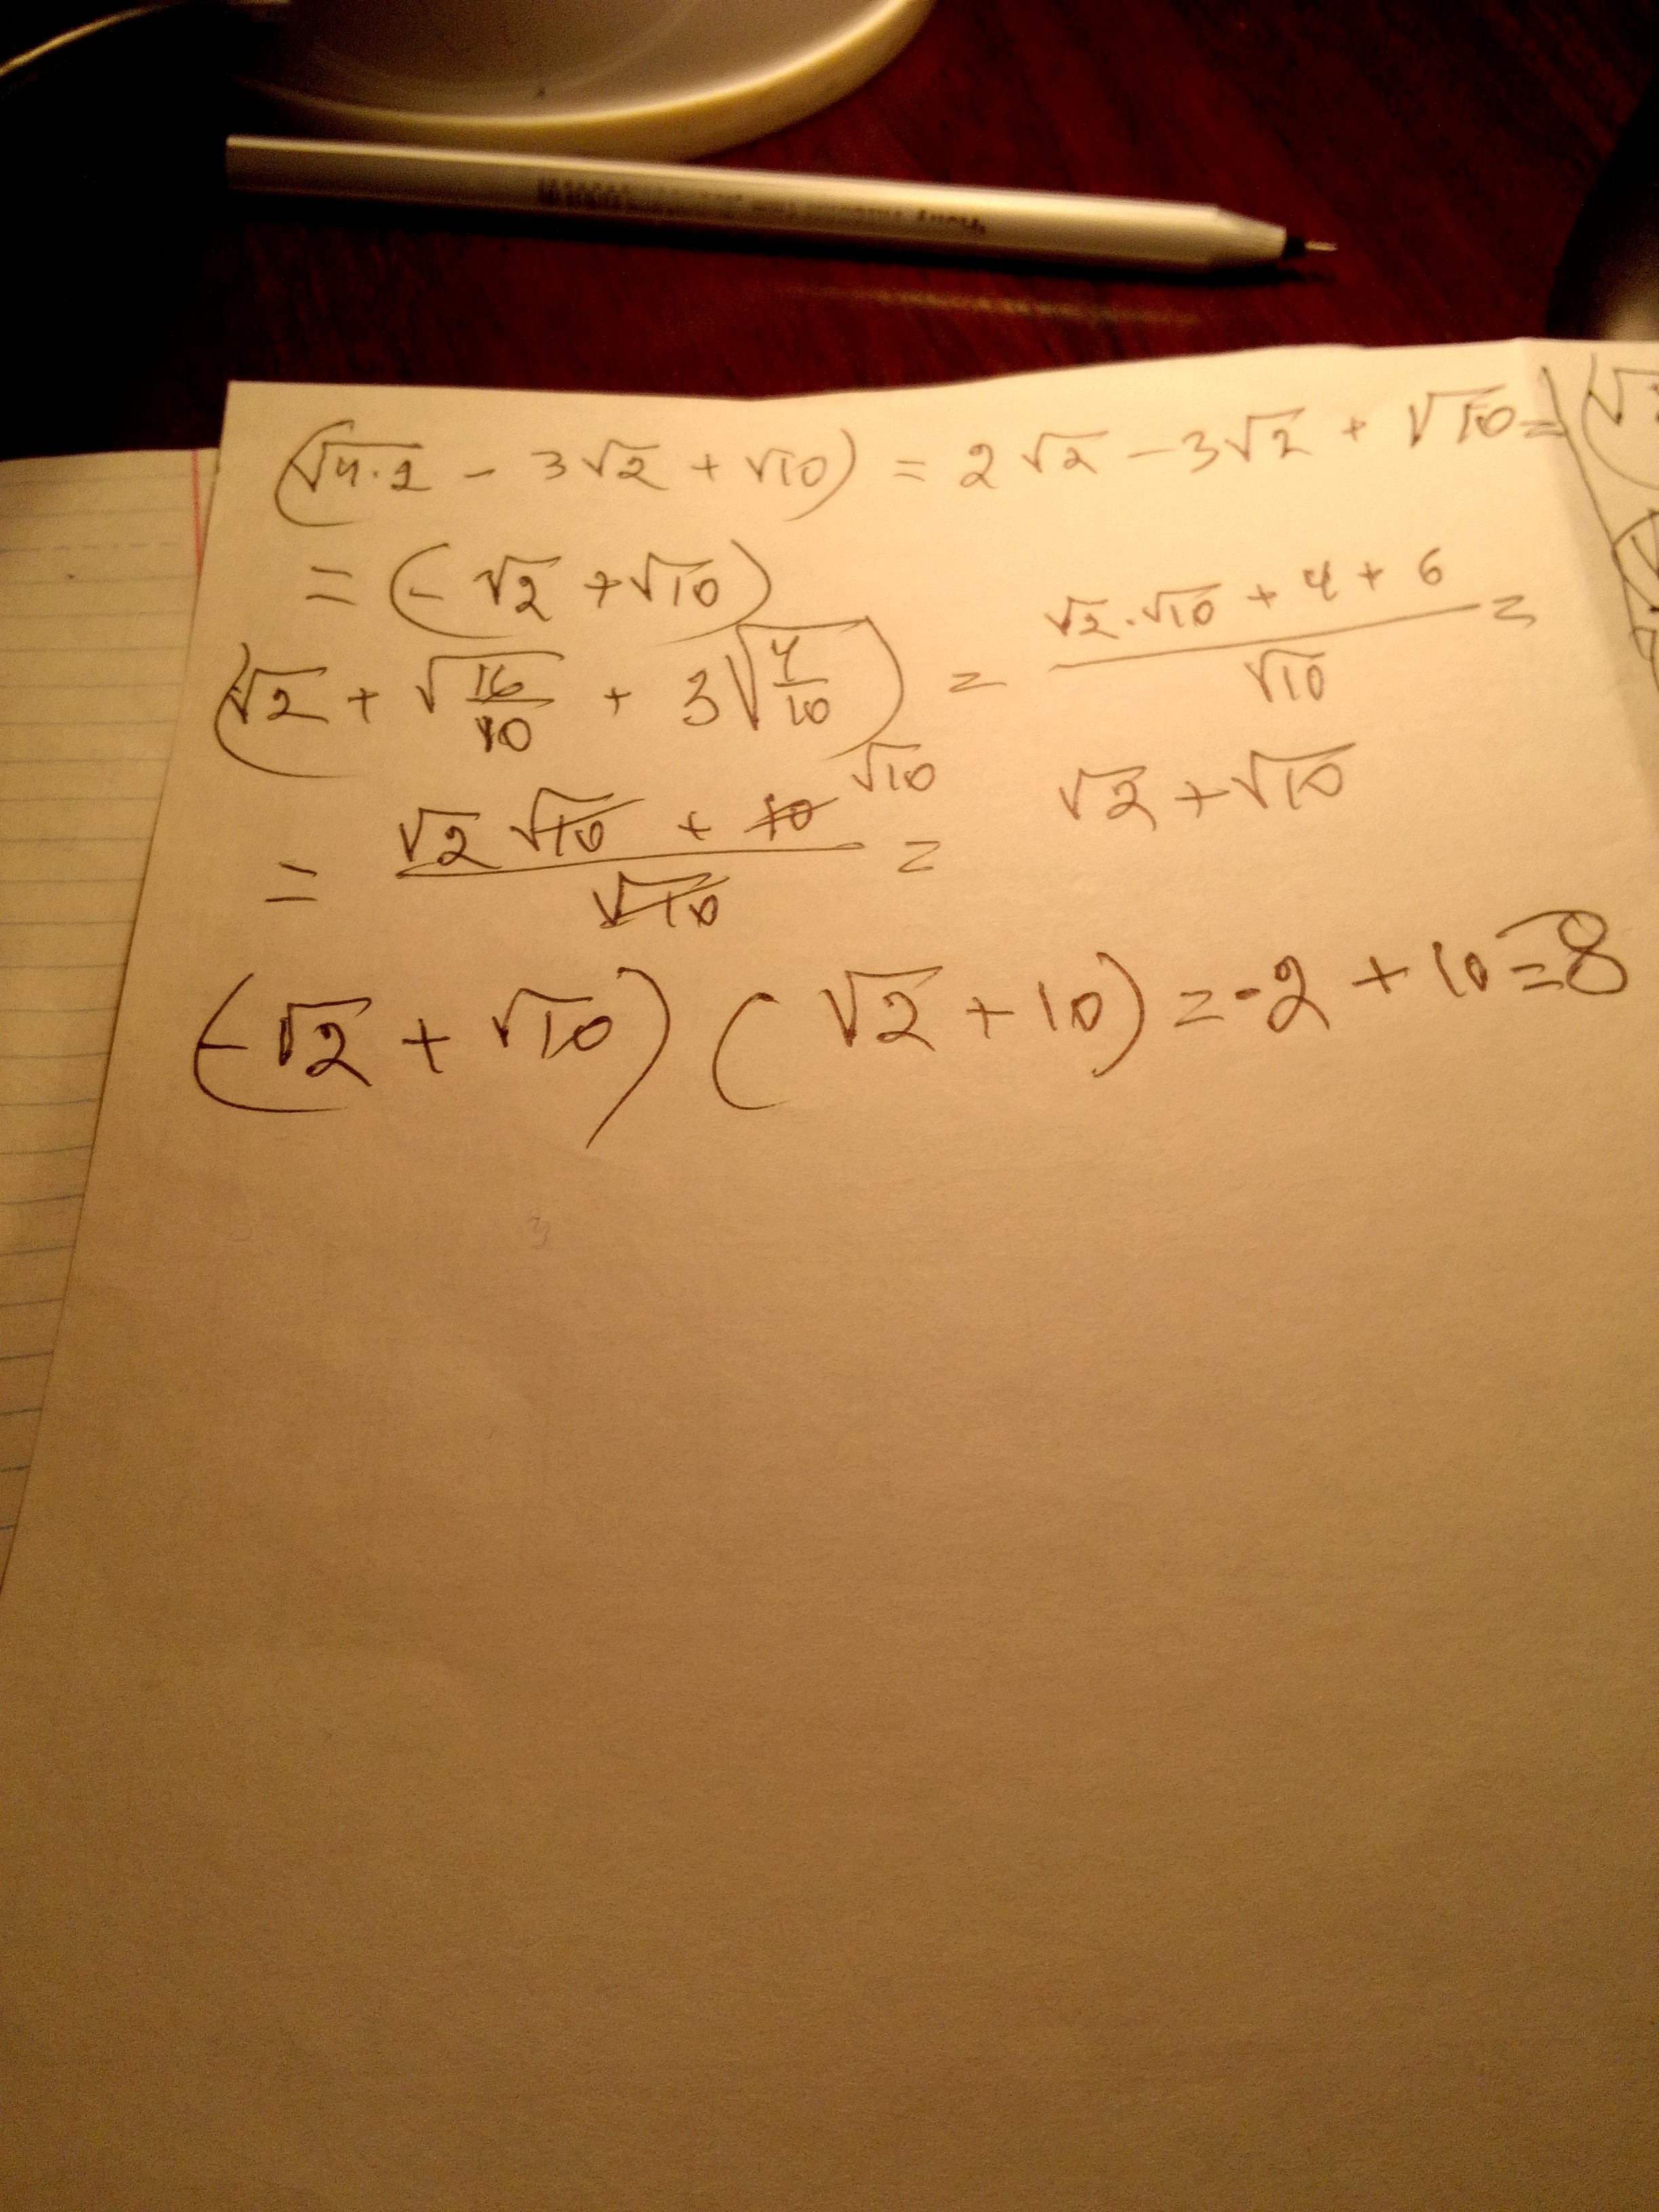 (√4·2 - 3√2 + √10) = 2√2 - 3√2 + √10 =
= (-√2 + √10)
(√2 + √16/10 + 3√4/10) = √2·√10 + 4 + 6 / √10 =
= √2 √10 + 10 √10 / √10 = √2 + √10
(-√2 + √10) (√2 + 10) = -2 + 10 = 8